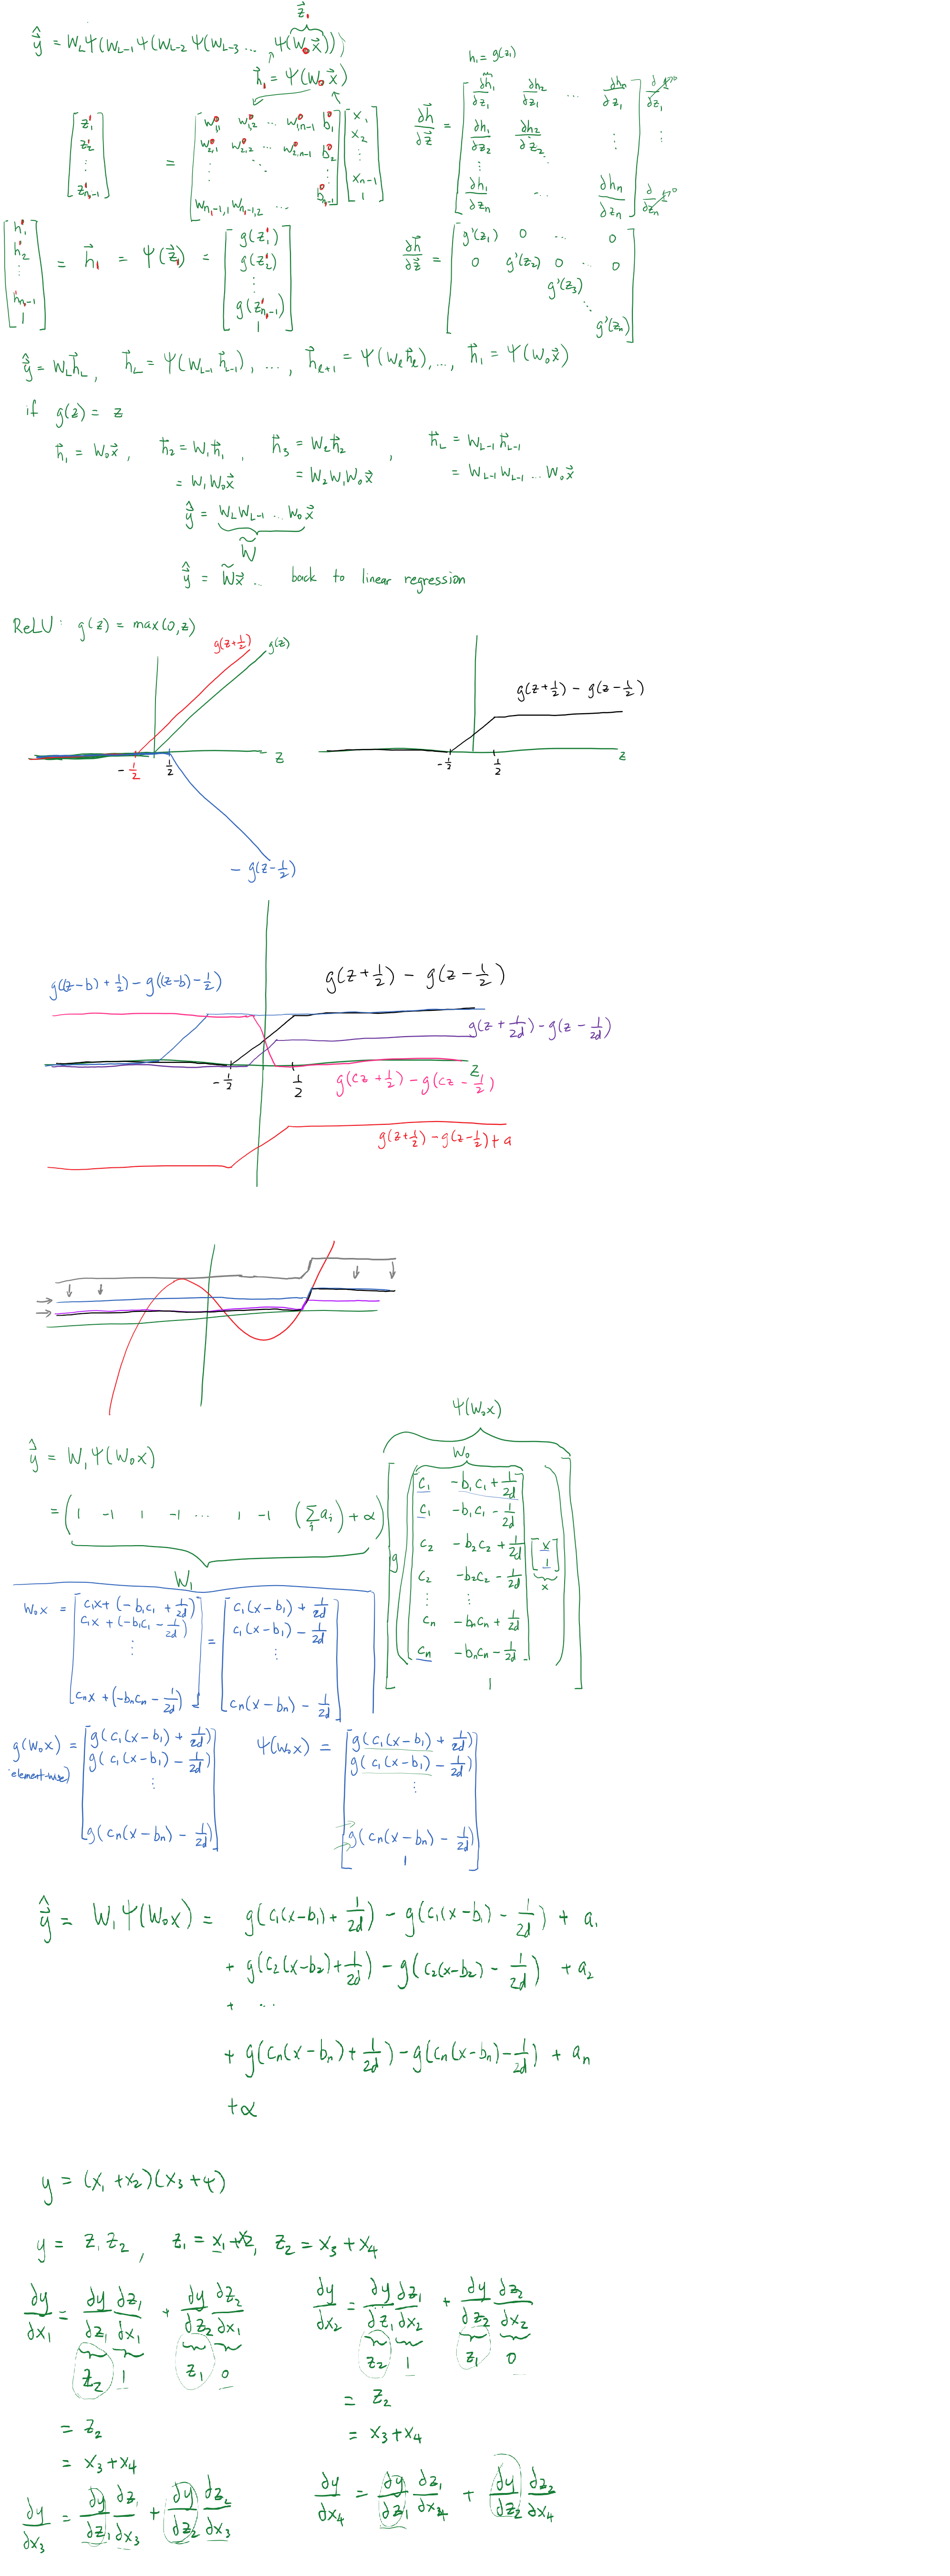 z⃗₁
ŷ = W_L Ψ(W_{L-1} Ψ(W_{L-2} Ψ(W_{L-3} ... Ψ(W₀x⃗)))
h⃗₁ = Ψ(W₀x⃗)
h₁ = g(z₁)
[z₁¹ z₂¹ ⋮ z¹_{n₁-1}] = [w⁰₁,₁ w⁰₁,₂ ... w⁰₁,n-1 b⁰₁
w⁰₂,₁ w⁰₂,₂ ... w⁰₂,n-1 b⁰₂
⋮ ⋱ ⋮
w_{n₁-1,1} w_{n₁-1,2} ... b⁰_{n₁-1}] [x₁ x₂ ⋮ x_{n-1} 1]
∂h⃗/∂z⃗ = [∂h₁/∂z₁ ∂h₂/∂z₁ ... ∂hₙ/∂z₁] ∂/∂z₁
∂h₁/∂z₂ ∂h₂/∂z₂ ⋮
∂h₁/∂zₙ ... ∂hₙ/∂zₙ] ∂/∂zₙ
[h₁¹ h₂¹ ⋮ h_{n₁-1} 1] = h⃗₁ = Ψ(z⃗₁) = [g(z₁¹) g(z₂¹) ⋮ g(z¹_{n₁-1}) 1]
∂h⃗/∂z⃗ = [g'(z₁) 0 ... 0
0 g'(z₂) 0 ... 0
g'(z₃)
⋱
g'(zₙ)]
ŷ = W_L h⃗_L, h⃗_L = Ψ(W_{L-1} h⃗_{L-1}), ..., h⃗_{ℓ+1} = Ψ(W_ℓ h⃗_ℓ), ..., h⃗₁ = Ψ(W₀x⃗)
if g(z) = z
h⃗₁ = W₀x⃗, h⃗₂ = W₁h⃗₁, h⃗₃ = W₂h⃗₂, h⃗_L = W_{L-1}h⃗_{L-1}
= W₁W₀x⃗ = W₂W₁W₀x⃗ = W_{L-1}W_{L-1}...W₀x⃗
ŷ = W_L W_{L-1} ... W₀x⃗
W̃
ŷ = W̃x⃗ ... back to linear regression
ReLU: g(z) = max(0,z)
g(z+1/2) g(z)
g(z+1/2) - g(z-1/2)
z
-1/2 1/2
z
-1/2 1/2
- g(z-1/2)
g((z-b)+1/2) - g((z-b)-1/2)
g(z+1/2) - g(z-1/2)
g(z+1/2d) - g(z-1/2d)
z
-1/2 1/2
g(cz+1/2) - g(cz-1/2)
g(z+1/2) - g(z-1/2) + a
Ψ(W₀x)
ŷ = W₁Ψ(W₀x)
W₀
= (1 -1 1 -1 ... 1 -1 (Σᵢ aᵢ)+α) [g([c₁ -b₁c₁+1/2d
c₁ -b₁c₁-1/2d
c₂ -b₂c₂+1/2d
c₂ -b₂c₂-1/2d
⋮ ⋮
cₙ -bₙcₙ+1/2d
cₙ -bₙcₙ-1/2d] [x 1])
1]
x
W₁
W₀x = [c₁x+(-b₁c₁+1/2d)
c₁x+(-b₁c₁-1/2d)
⋮
cₙx+(-bₙcₙ-1/2d)] = [c₁(x-b₁)+1/2d
c₁(x-b₁)-1/2d
⋮
cₙ(x-bₙ)-1/2d]
g(W₀x) = [g(c₁(x-b₁)+1/2d)
(element-wise) g(c₁(x-b₁)-1/2d)
⋮
g(cₙ(x-bₙ)-1/2d)]
Ψ(W₀x) = [g(c₁(x-b₁)+1/2d)
g(c₁(x-b₁)-1/2d)
⋮
g(cₙ(x-bₙ)-1/2d)
1]
ŷ = W₁Ψ(W₀x) = g(c₁(x-b₁)+1/2d) - g(c₁(x-b₁)-1/2d) + a₁
+ g(c₂(x-b₂)+1/2d) - g(c₂(x-b₂)-1/2d) + a₂
+ ...
+ g(cₙ(x-bₙ)+1/2d) - g(cₙ(x-bₙ)-1/2d) + aₙ
+α
y = (x₁+x₂)(x₃+4)
y = z₁z₂, z₁ = x₁+x₂, z₂ = x₃+x₄
∂y/∂x₁ = ∂y/∂z₁ ∂z₁/∂x₁ + ∂y/∂z₂ ∂z₂/∂x₁
z₂ 1 z₁ 0
= z₂
= x₃+x₄
∂y/∂x₂ = ∂y/∂z₁ ∂z₁/∂x₂ + ∂y/∂z₂ ∂z₂/∂x₂
z₂ 1 z₁ 0
= z₂
= x₃+x₄
∂y/∂x₃ = ∂y/∂z₁ ∂z₁/∂x₃ + ∂y/∂z₂ ∂z₂/∂x₃
∂y/∂x₄ = ∂y/∂z₁ ∂z₁/∂x₄ + ∂y/∂z₂ ∂z₂/∂x₄